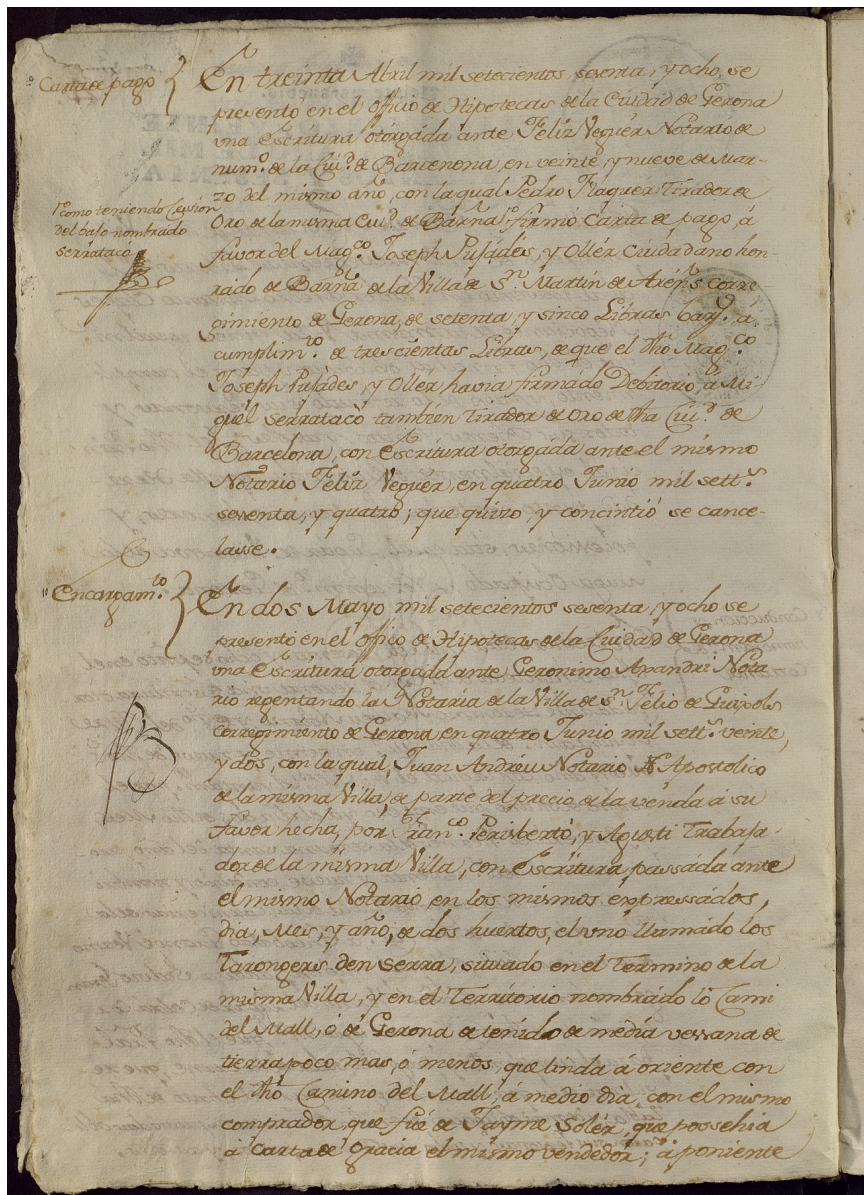 Carta de pago
En treinta Abril mil setecientos, sesenta, y ocho, se
presentó en el officio de Hipotecas de la Ciudad de Gerona
vna Escritura otorgáda ánte Félix Veguér Notario de
num.º de la Ciu.d de Barcenona, en veinte, y nueve de Mar-
zo del mismo año, con la qual Pedro Flaquer Tirador de
Oro de la misma Ciu.d de Barña 1º firmó Carta de pago, á
1º como teniendo Cession
del bajo nombrado
serratacó
favor del Mag.co Joseph Pujádes, y Ollér Ciudadano hon-
rádo de Barña de la Villa de S.n Martin de Aréns corre-
gimiento de Gerona, de setenta, y sinco Libras barj.s á
cumplim.to de trescientas Libras, de que el dho Mag.co
Joseph Pujádes, y Ollér, havia firmádo Debitorio, á Mi-
guél serratacó tambien Tirador de oro de dha Ciu.d de
Barcelona, con Escritura otorgáda ante el mismo
Notario Félix Veguér, en quatro Junio mil sett.s
sesenta, y quatro; que quizo, y concintió se cance-
lasse.
Encargam.to
En dos Mayo mil setecientos sesenta, y ocho se
presentó en el officio de Hipotecas de la Ciudad de Gerona
vna Escritura otorgáda ante Geronimo Axandri Nota
rio regentando la Notaria de la Villa de S.n Felio de Guixols
corregimiento de Gerona, en quatro Junio mil sett.s veinte,
y dos, con la qual, Juan Andréu Notario Apostolico
de la misma Villa, de parte del precio, de la vénda á su
favor hecha, por Fran.co Perisbertó, y Agusti Trabaja-
dor de la misma Villa, con Escritura passáda ante
el mismo Notario en los mismos expressádos,
dia, Mes, y año, de dos huertos, el vnó llamádo los
Tarongers den serra, situado en el Termino de la
misma Villa, y en el Territorio nombrádo ló Cami
del Mall, ó de Gerona de tenida de media vessana de
tierra poco mas, ó menos, que linda á oriente con
el dho Camino del Mall, á medio dia, con el mismo
comprador, que fué de Jayme Solér, que possehia
á Carta de Gracia el mismo vendedór; á poniente